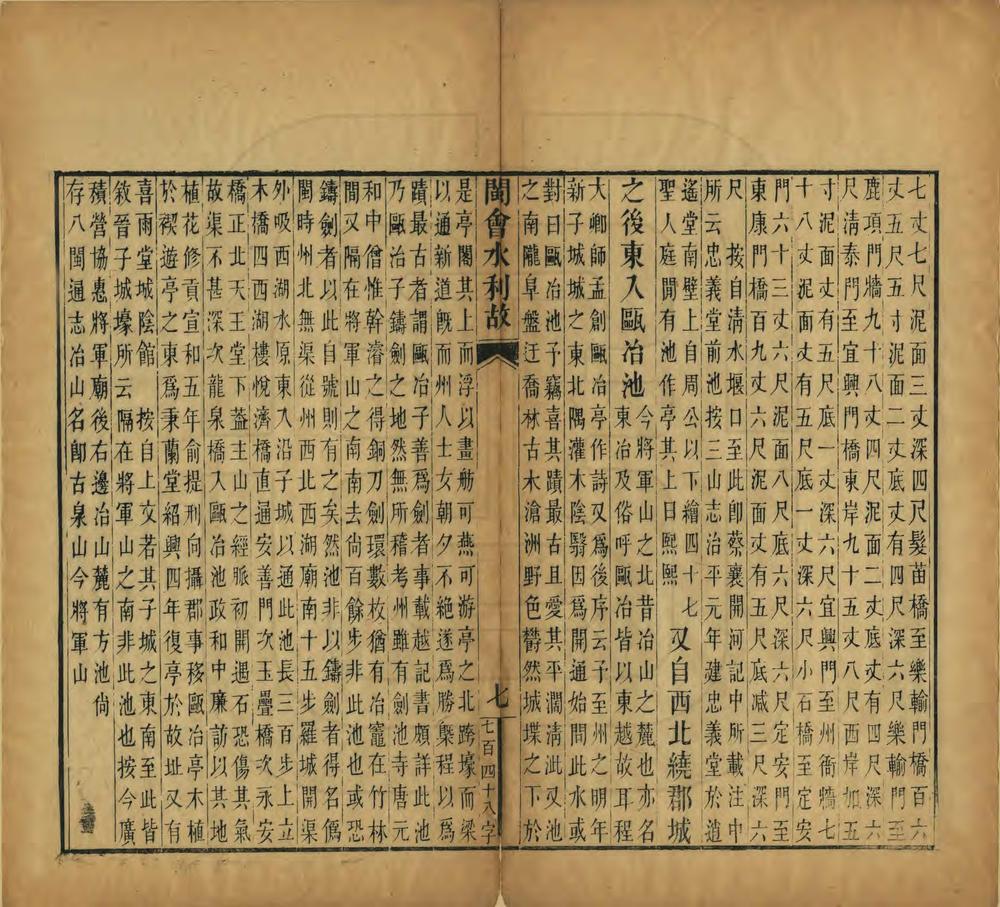 七丈七尺泥面三丈深四尺髮苗橋至樂輸門橋百六
丈五尺五寸泥面二丈底丈有四尺深六尺樂輸門至
鹿項門牆九十八丈四尺泥面二丈底丈有四尺深六
尺清泰門至宜興門橋東岸九十五丈八尺西岸加五
寸泥面丈有五尺底一丈深六尺宜興門至州衙牆七
十八丈泥面丈有五尺底一丈深六尺小石橋至定安
門六十三丈六尺泥面八尺底六尺深六尺定安門至
東康門橋百九丈六尺泥面丈有五尺底減三尺深六
尺 按自清水堰口至此卽蔡襄開河記中所載注中
所云忠義堂前池按三山志治平元年建忠義堂於逍
遙堂南壁上自周公以下繪四十七
聖人庭閒有池作亭其上曰熙熙 又自西北繞郡城
之後東入甌冶池 今將軍山之北昔冶山之麓也亦名
東冶及俗呼甌冶皆以東越故耳程
大卿師孟創甌冶亭作詩又爲後序云予至州之明年
新子城城之東北隅灌木陰翳因爲開通始問此水或
對曰甌冶池予竊喜其蹟最古且愛其平濶清泚又池
之南隴阜盤迂喬林古木滄洲野色鬱然城堞之下於
閩會水利故 七 七百四十八字
是亭閣其上而浮以畫舫可燕可游亭之北跨壕而梁
以通新道旣而州人士女朝夕不絕遂爲勝槩程以爲
蹟最古者謂甌冶子善爲劍者事載越記書頗詳此池
乃甌冶子鑄劍之地然無所稽考州雖有劍池寺唐元
和中僧惟幹濬之得銅刀劍環數枚猶有冶竈在竹林
間又隔在將軍山之南南去尙百餘步非此池也或恐
鑄劍者以此自號則有之矣然池非以鑄劍者得名僞
閩時州北無渠從州西北西湖廟南十五步羅城開渠
外吸西湖水原東入沿子城以通此池長三百步上立
木橋四西湖樓悅濟橋直通安善門次玉疊橋次永安
橋正北天王堂下蓋主山之經脈初開遇石恐傷其氣
故渠不甚深次龍泉橋入甌冶池政和中廉訪以其地
植花修貢宣和五年俞提刑向攝郡事移甌冶亭木植
於禊遊亭之東爲秉蘭堂紹興四年復亭於故址又有
喜雨堂城陰館 按自上文若其子城之東南至此皆
敘晉子城壕所云隔在將軍山之南非此池也按今廣
積營協惠將軍廟後右邊冶山麓有方池尙
存八閩通志冶山名卽古泉山今將軍山